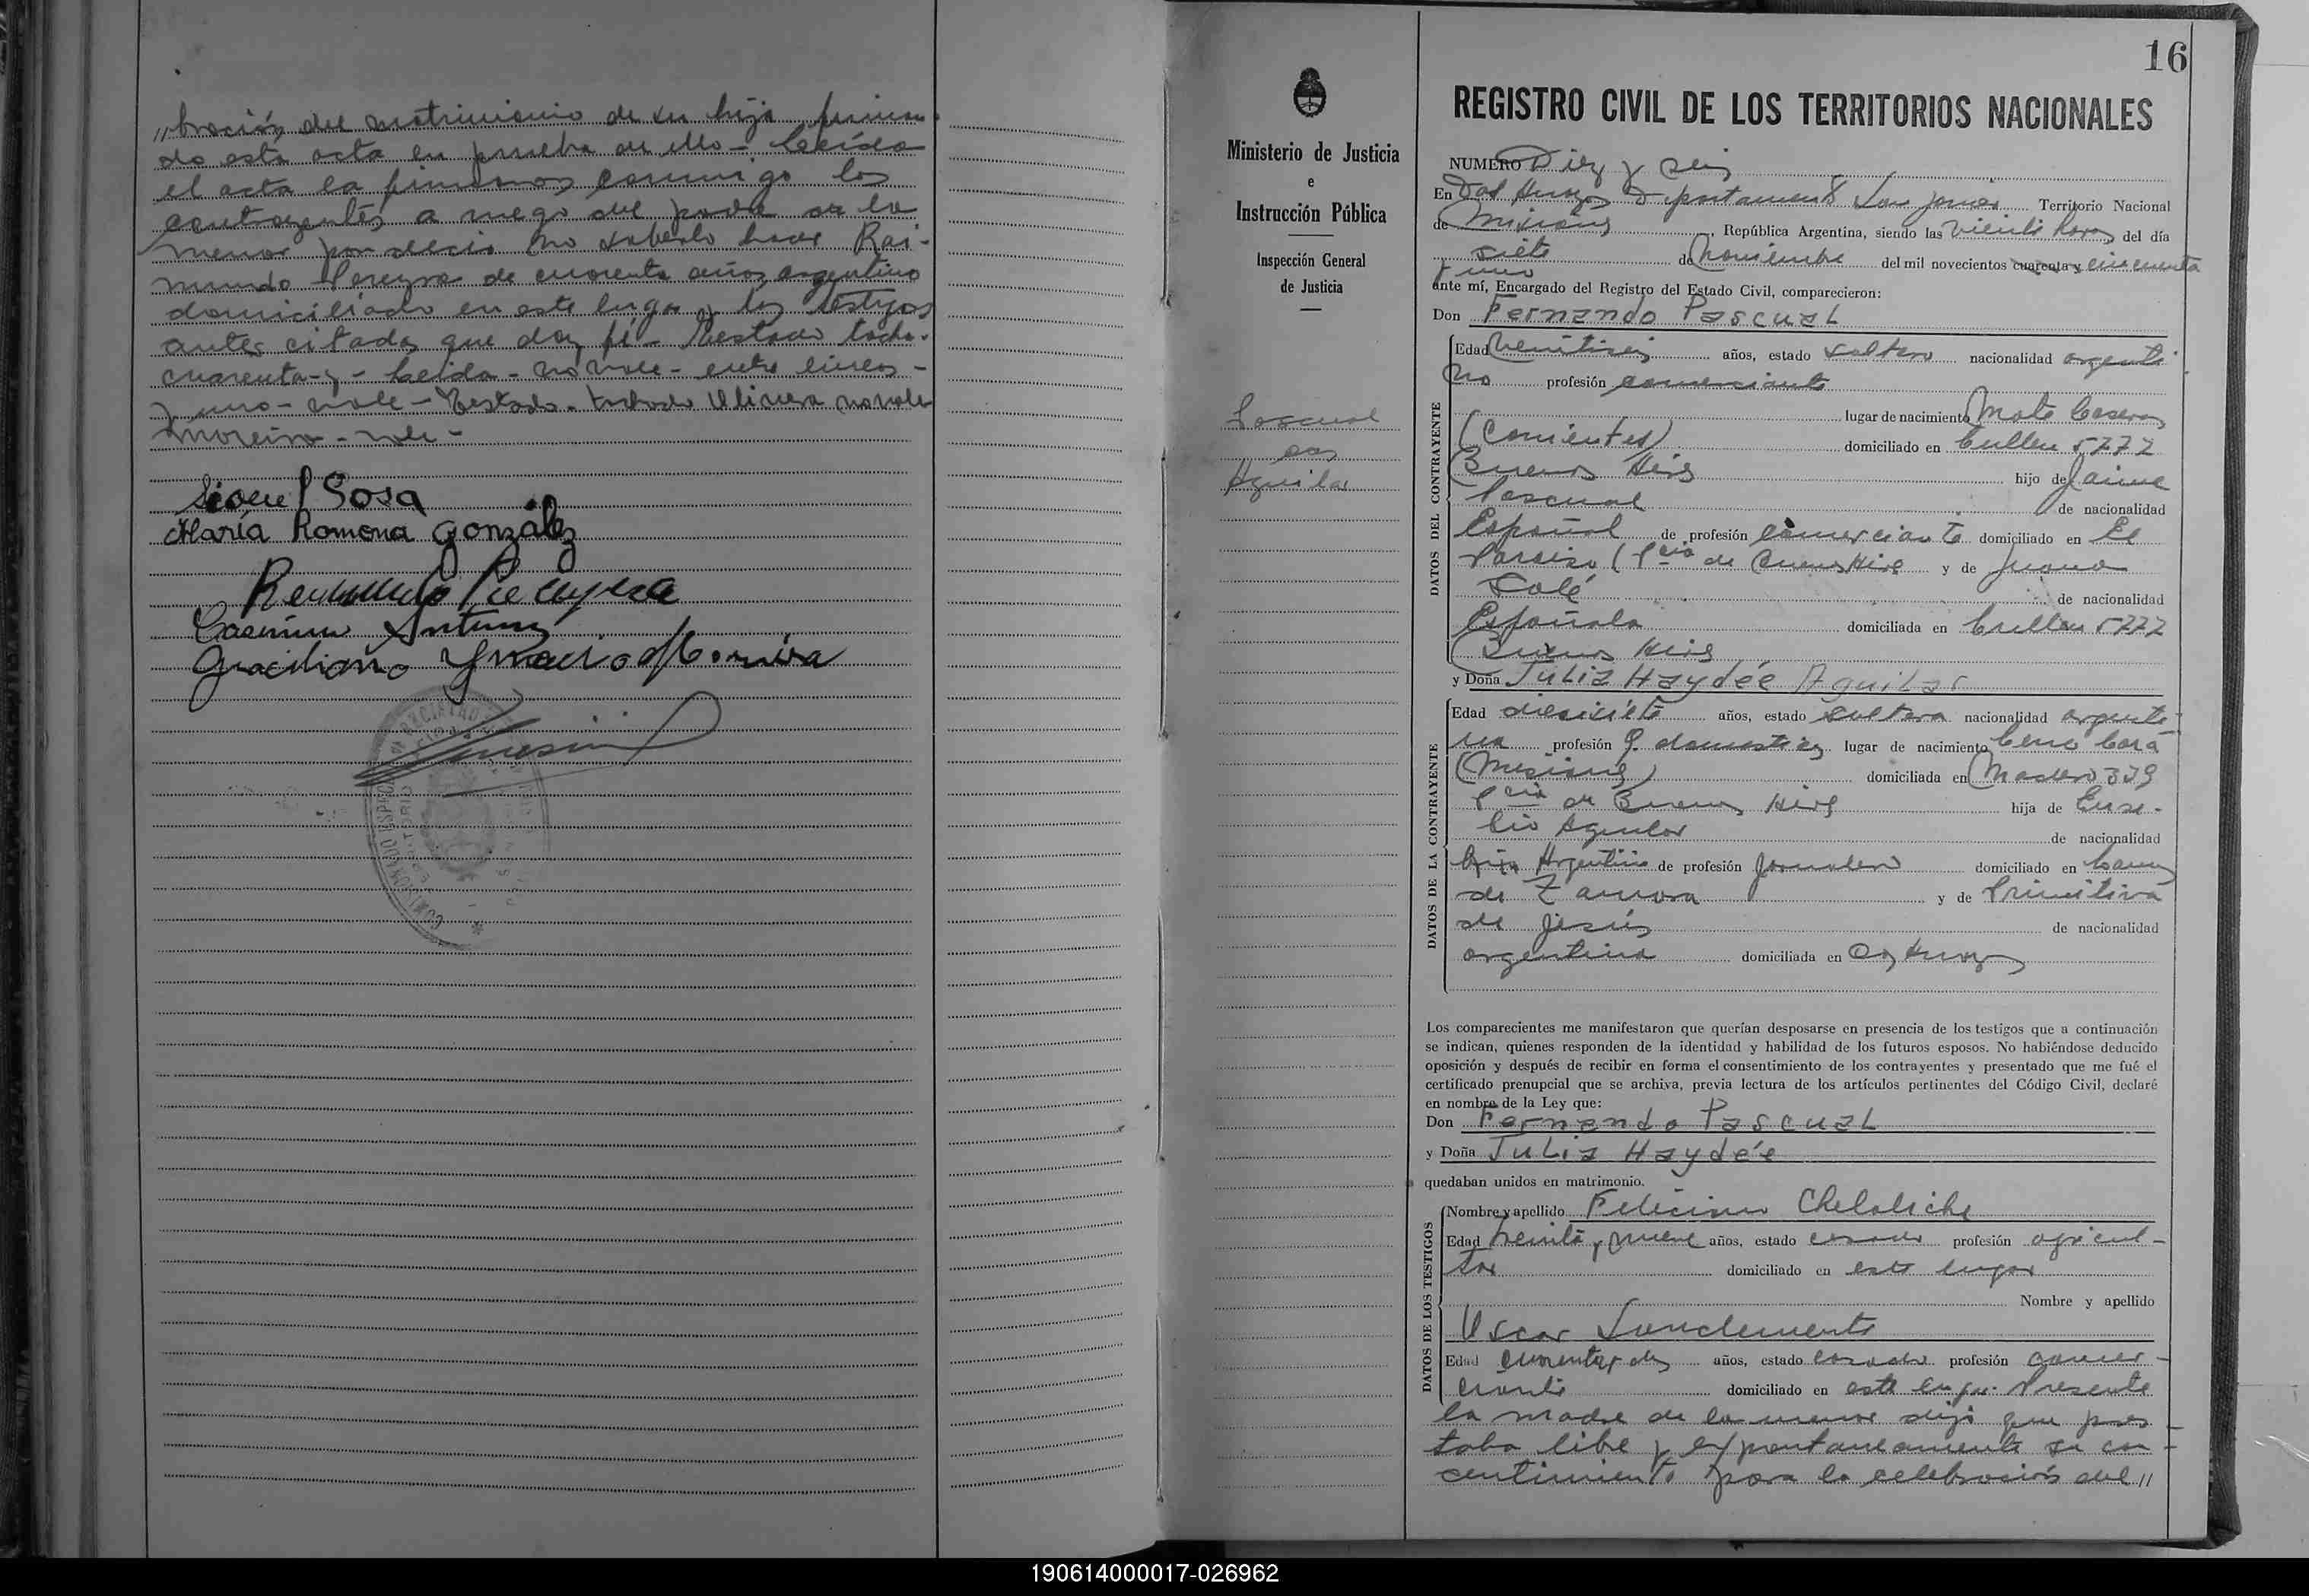 "bración del matrimonio de su hija firman
do esta acta en prueba de ello - Leída
el acta la firmaron conmigo los
contrayentes a ruego del padre de la
menor por decir no saberlo hacer Rai-
mundo Pereyra de cuarenta años argentino
domiciliado en este lugar y los testigos
antes citados que doy fe - Testado tacho-
cuarenta - y - Leída - no vale - entre líneas -
y uno - vale - Testado - no vale
Moreira - vale -
Sosa
María Ramona González
Casimiro Antunez
Graciliano Ignacio Moreira
16
Ministerio de Justicia
e
Instrucción Pública
Inspección General
de Justicia
Pascual
con
Aguilar
REGISTRO CIVIL DE LOS TERRITORIOS NACIONALES
NUMERO Diez y seis
En Dos Arroyos Departamento San Javier Territorio Nacional
de Misiones, República Argentina, siendo las veinte horas del día
siete de Noviembre del mil novecientos cuarenta y cincuenta
y uno
ante mí, Encargado del Registro del Estado Civil, comparecieron:
Don Fernando Pascual
Edad veintiseis años, estado soltero nacionalidad argenti
no profesión comerciante
lugar de nacimiento Monte Caseros
(Corrientes) domiciliado en Cullen 5772
Buenos Aires hijo de Jaime
Pascual de nacionalidad
Español de profesión comerciante domiciliado en El
Paraiso (Pcia de Buenos Aires y de Juana
Solé de nacionalidad
Española domiciliada en Cullen 5772
Buenos Aires
y Doña Julia Haydée Aguilar
DATOS DEL CONTRAYENTE
Edad diesisiete años, estado soltera nacionalidad argenti-
na profesión Q. domesticos lugar de nacimiento Cerro Corá
(Misiones) domiciliada en Madero 379
Pcia de Buenos Aires hija de Euse-
bio Aguilar de nacionalidad
Argentino de profesión Jornalero domiciliado en Lomas
de Zamora y de Primitiva
de Jesús de nacionalidad
argentina domiciliada en Dos Arroyos
DATOS DE LA CONTRAYENTE
Los comparecientes me manifestaron que querían desposarse en presencia de los testigos que a continuación
se indican, quienes responden de la identidad y habilidad de los futuros esposos. No habiéndose deducido
oposición y después de recibir en forma el consentimiento de los contrayentes y presentado que me fué el
certificado prenupcial que se archiva, previa lectura de los artículos pertinentes del Código Civil, declaré
en nombre de la Ley que:
Don Fernando Pascual
y Doña Julia Haydée
quedaban unidos en matrimonio.
Nombre y apellido Feliciano Cheloliche
Edad treinta y nueve años, estado casado profesión agricul-
tor domiciliado en este lugar
Nombre y apellido
Oscar Sanclemente
Edad cuarenta y dos años, estado casado profesión comer-
ciante domiciliado en este lugar. Presente
DATOS DE LOS TESTIGOS
la madre de la menor dijo que pres-
taba libre y expontaneamente su con-
centimiento para la celebración del "
190614000017-026962